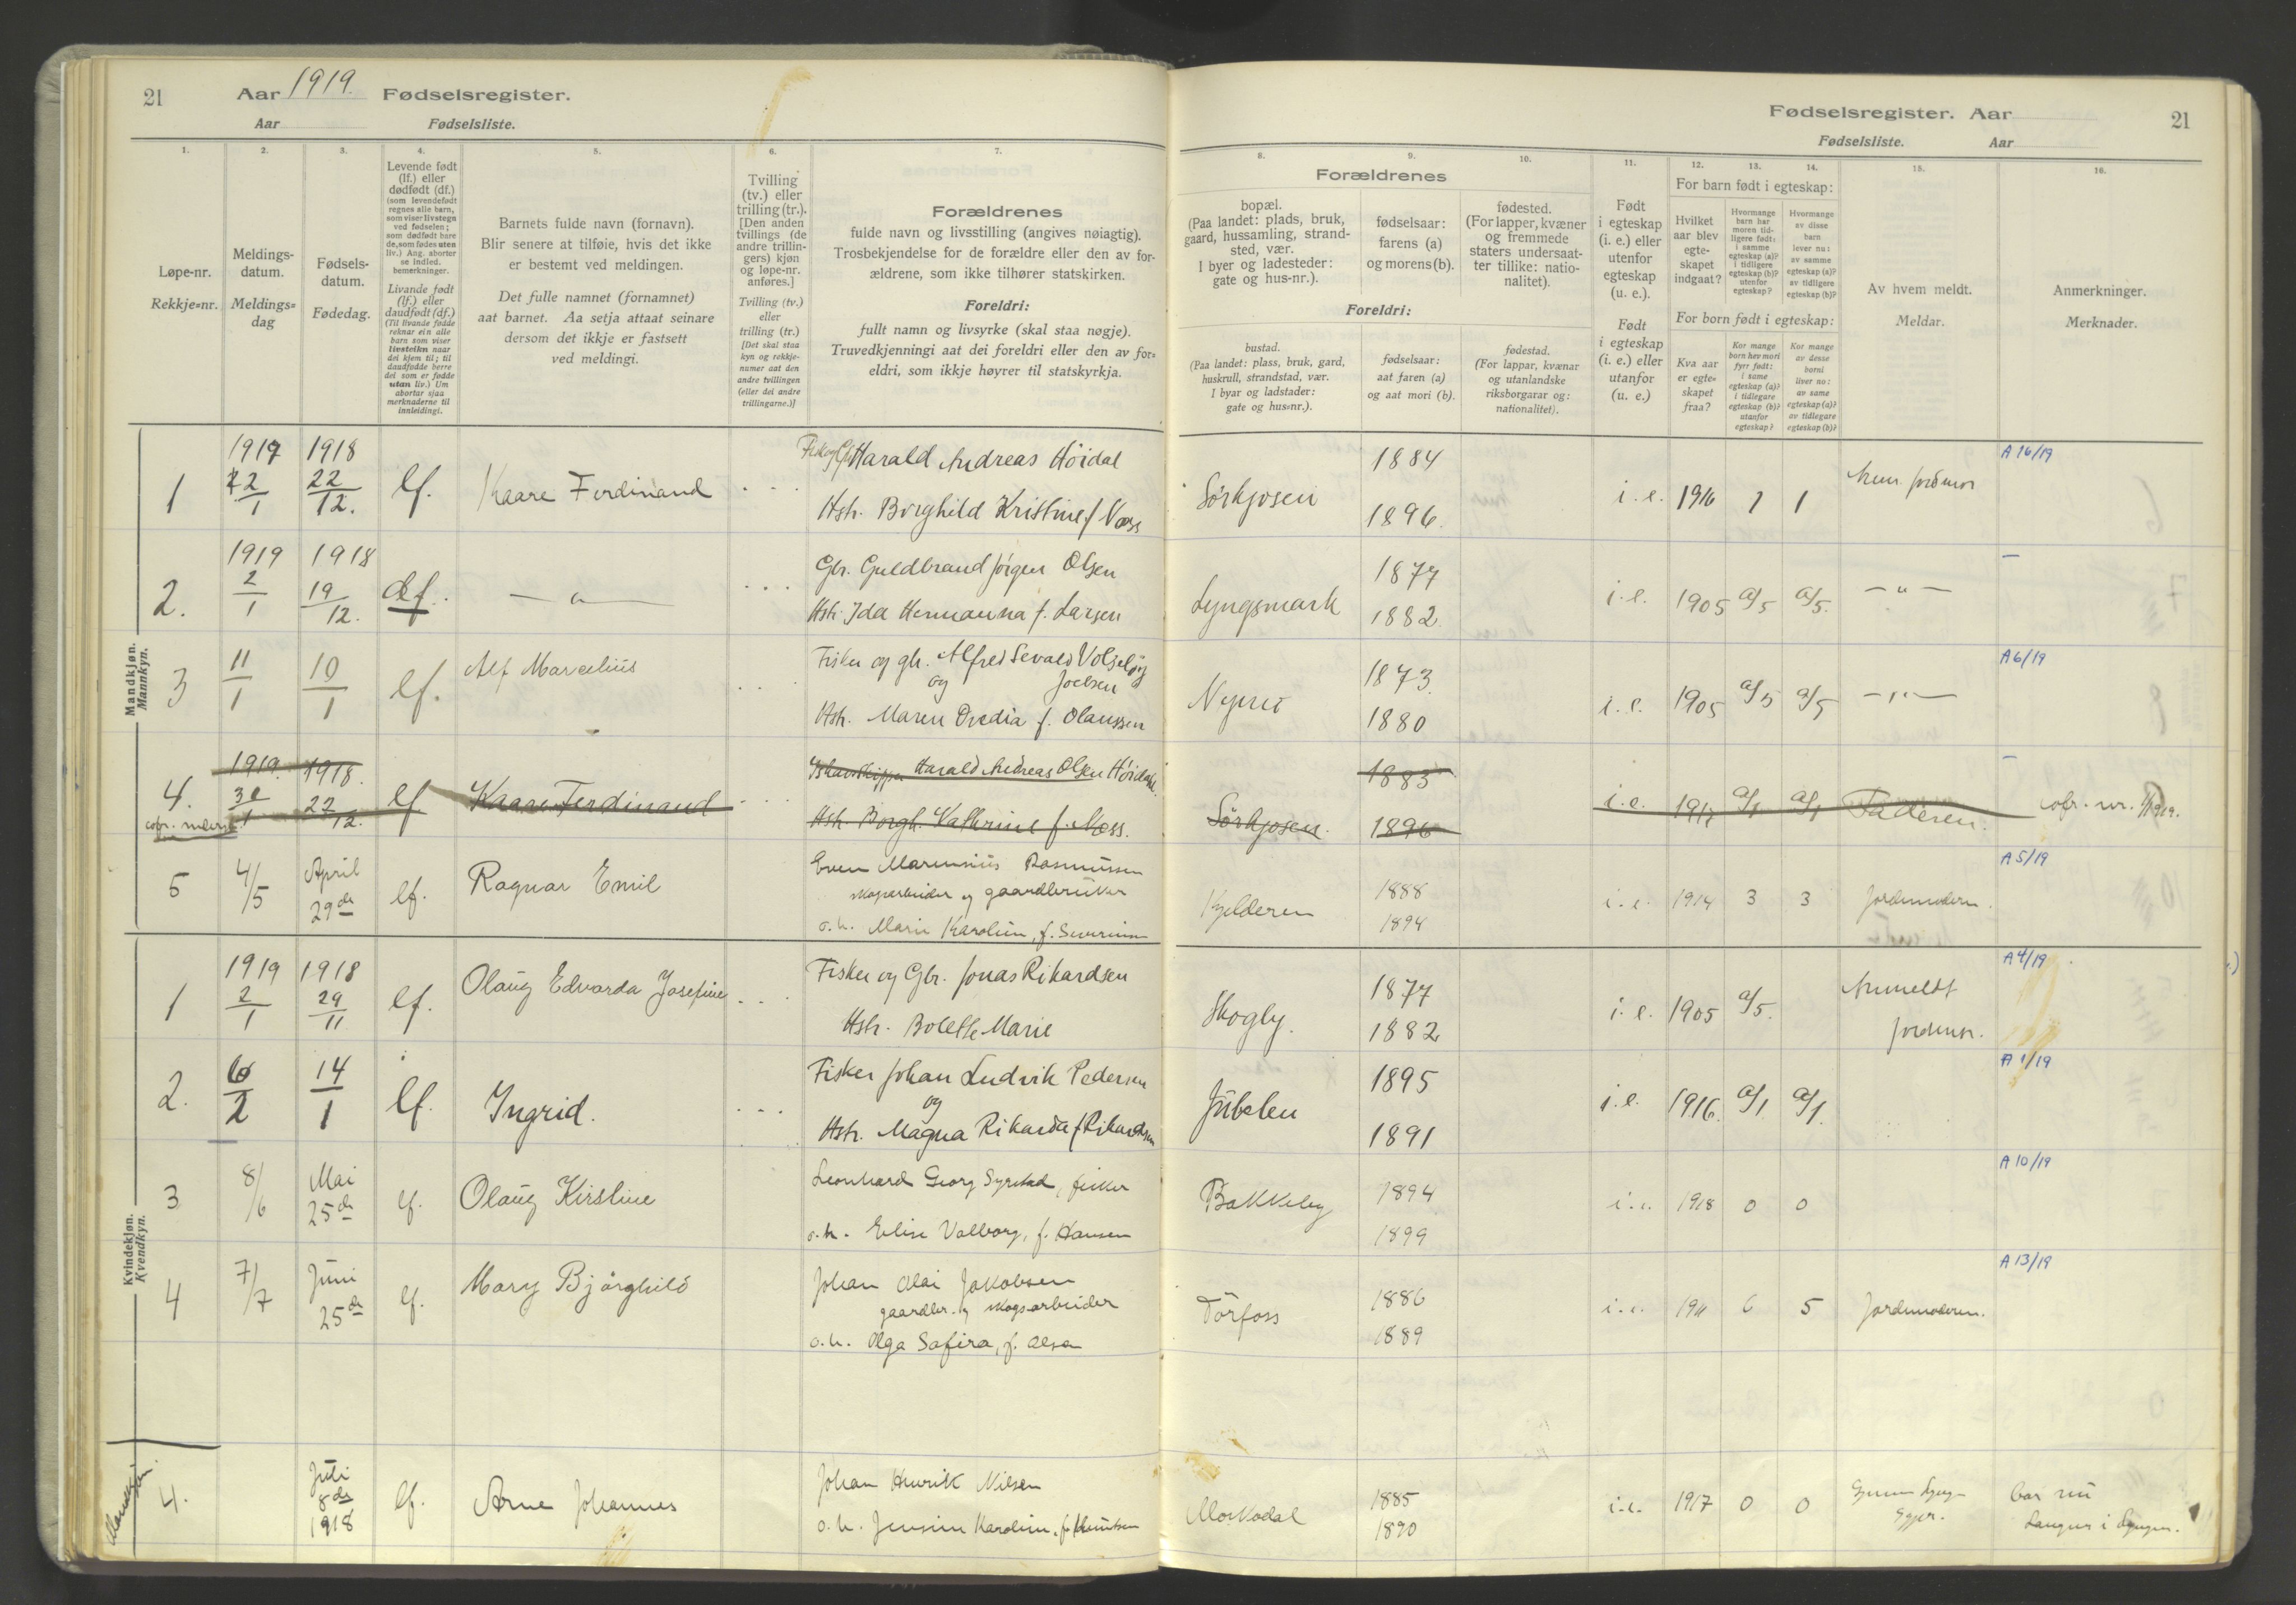 21 Aar 1919. Fødselsregister.
Aar Fødselsliste.
Fødselsregister. Aar 21
Fødselsliste. Aar
1. 2. 3. 4. 5. 6. 7. 8. 9. 10. 11. 12. 13. 14. 15. 16.
Løpe-nr.
Rekkje=nr.
Meldings-
datum.
Meldings=
dag
Fødsels-
datum.
Fødedag.
Levende født
(lf.) eller
dødfødt (df.)
(som levendefødt
regnes alle barn,
som viser livstegn
ved fødselen;
som dødfødt bare
de, som fødes uten
liv.) Ang. aborter
se indled.
bemerkninger.
Livande født
(lf.) eller
daudfødt (df.)
(Til livande fødde
reknar ein alle
barn som viser
livsteikn naar
dei kjem til; til
daudfødde berre
dei som er fødde
utan liv.) Um
abortar sjaa
merknaderne til
innleidingi.
Barnets fulde navn (fornavn).
Blir senere at tilføie, hvis det ikke
er bestemt ved meldingen.
Det fulle namnet (fornamnet)
aat barnet. Aa setja attaat seinare
dersom det ikkje er fastsett
ved meldingi.
Tvilling
(tv.) eller
trilling (tr.).
[Den anden
tvillings (de
andre trillin-
gers) kjøn
og løpe-nr.
anføres.]
Tvilling (tv.)
eller
trilling (tr.)
[Det skal staa
kyn og rekkje-
numer aat den
andre tvillingen
(eller dei andre
trillingarne.)]
Forældrenes
fulde navn og livsstilling (angives nøiagtig).
Trosbekjendelse for de forældre eller den av for-
ældrene, som ikke tilhører statskirken.
Foreldri:
fullt namn og livsyrke (skal staa nøgje).
Truvedkjenningi aat dei foreldri eller den av for=
eldri, som ikkje høyrer til statskyrkja.
Forældrenes
bopæl.
(Paa landet: plads, bruk,
gaard, hussamling, strand-
sted, vær.
I byer og ladesteder:
gate og hus-nr.).
fødselsaar:
farens (a)
og morens (b).
fødested.
(For lapper, kvæner
og fremmede
staters undersaat-
ter tillike: natio-
nalitet).
Foreldri:
bustad.
(Paa landet: plass, bruk, gard,
huskrull, strandstad, vær.
I byar og ladstader:
gate og hus=nr.).
fødselsaar:
aat faren (a)
og aat mori (b).
fødestad.
(For lappar, kvænar
og utanlandske
riksborgarar og:
nationalitet).
Født
i egteskap
(i. e.) eller
utenfor
egteskap
(u. e.).
Født
i egteskap
(i. e.) eller
utanfor
(u. e.)
For barn født i egteskap:
Hvilket
aar blev
egte-
skapet
indgaat?
Hvormange
barn har
moren tid-
ligere født:
i samme
egteskap (a)?
i tidligere
egteskap (b)?
utenfor
egteskap?
Hvormange
av disse
barn
lever nu:
av samme
egteskap (a)?
av tidligere
egteskap (b)?
For born født i egteskap:
Kva aar
er egte=
skapet
fraa?
Kor mange
born hev mori
fyrr født:
i same
egteskap (a)?
i tidlegare
egteskap (b)?
utanfor
egteskap?
Kor mange
av desse
borni
liver no:
av same
egteskap (a)?
av tidlegare
egteskap (b)?
Av hvem meldt.
Meldar.
Anmerkninger.
Merknader.
Mandkjøn.
Mannkyn.
1 1919 22/1 1918 22/12. lf. Kaare Ferdinand Harald Andreas Höidal
Hstr. Borghild Kristine f. Næss
Sörkjosen 1884 1896. i. e. 1916 1 1 A 16/19
2. 1919 2/1 1918 19/12. df. — " — Gbr. Guldbrand Jörgen Olsen
Hstr. Ida Hermanna f. Larsen
Lyngsmark 1877 1882. i. e. 1905 a/5 a/5. — " — —
3 11/1 10/1 lf. Alf Marcelius Fisker og gbr. Alfred Sevald
og Joelsen
Hstr. Maren f. Olaussen
1873. 1880 i. e. 1905 a/5 a/5 — " — A 6/19
4. 1919. 30/1 1918. 22/12. lf Kaare Ferdinand Ishavsskipper Harald Andreas Olsen Höidahl.
Hstr. Borgh. Kathrine f. Næss.
Sörkjosen. 1883 1896 i. e. 1917 a/1 a/1 Faderen. — cofr. nr. 1/1919.
5 4/5 April 29de lf. Ragnar Emil Even Rasmussen
skogsarbeider og gaardbruker
o. h. Marie Karoline, f. Severinsen
Kjelderen 1888 1894 i. e. 1914 3 3 Jordemoderen. A 5/19
Kvindekjøn.
Kvendkyn.
1 1919 2/1 1918 29/11 lf. Olaug Edvarda Josefine Fisker og Gbr. Jonas Rikardsen
Hstr. Bolette Marie
Skogly. 1877 1882 i. e. 1905 a/5. Anmeldt
jordmor. A 4/19
2. 6/2 14/1 lf. Ingrid. Fisker Johan Ludvik Pedersen
og
Hstr. Magna Rikarda f. Rikardsen
Jübelen 1895 1891 i. e. 1916. a/1 a/1. A 1/19
3 8/6 Mai 25de lf. Olaug Kirstine Leonhard Georg Syrstad, fisker
o. h. Elise Valborg, f. Hansen
Bakkeby 1894 1899 i. e. 1918 0 0 A 10/19
4 7/7 Juni 25de lf. Mary Bjørghild Johan Olai Jakobsen
gaardbr. og skogsarbeider
o. h. Olga Safira, f. Olsen
Törfoss 1886 1889 i. e. 1911 6 5 Jordemoderen. A 13/19
Mandkjøn.
4. Juli 8de 1918 lf. Arne Johannes Johan Henrik Nilsen
o. h. Jensine Karoline, f. Knutsen
Mo 1885 1890 i. e. 1917 0 0